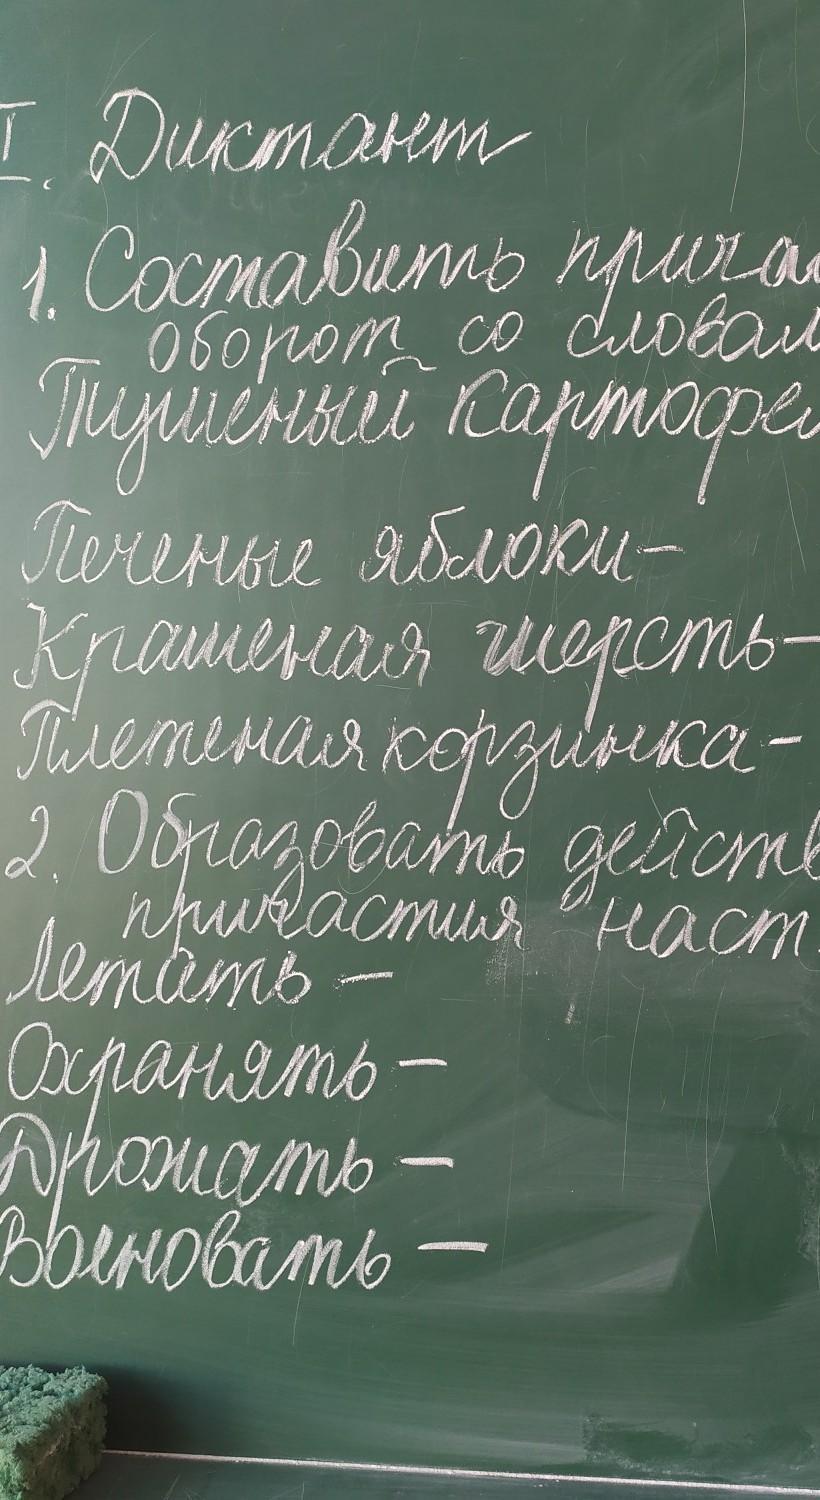 I. Диктант
1. Составить прича
оборот со словам
Тушеный картофел
Печеные яблоки-
Крашеная шерсть-
Плетеная корзинка-
2. Образовать действ
причастия наст.
Летать-
Охранять-
Дрожать-
Воевовать-